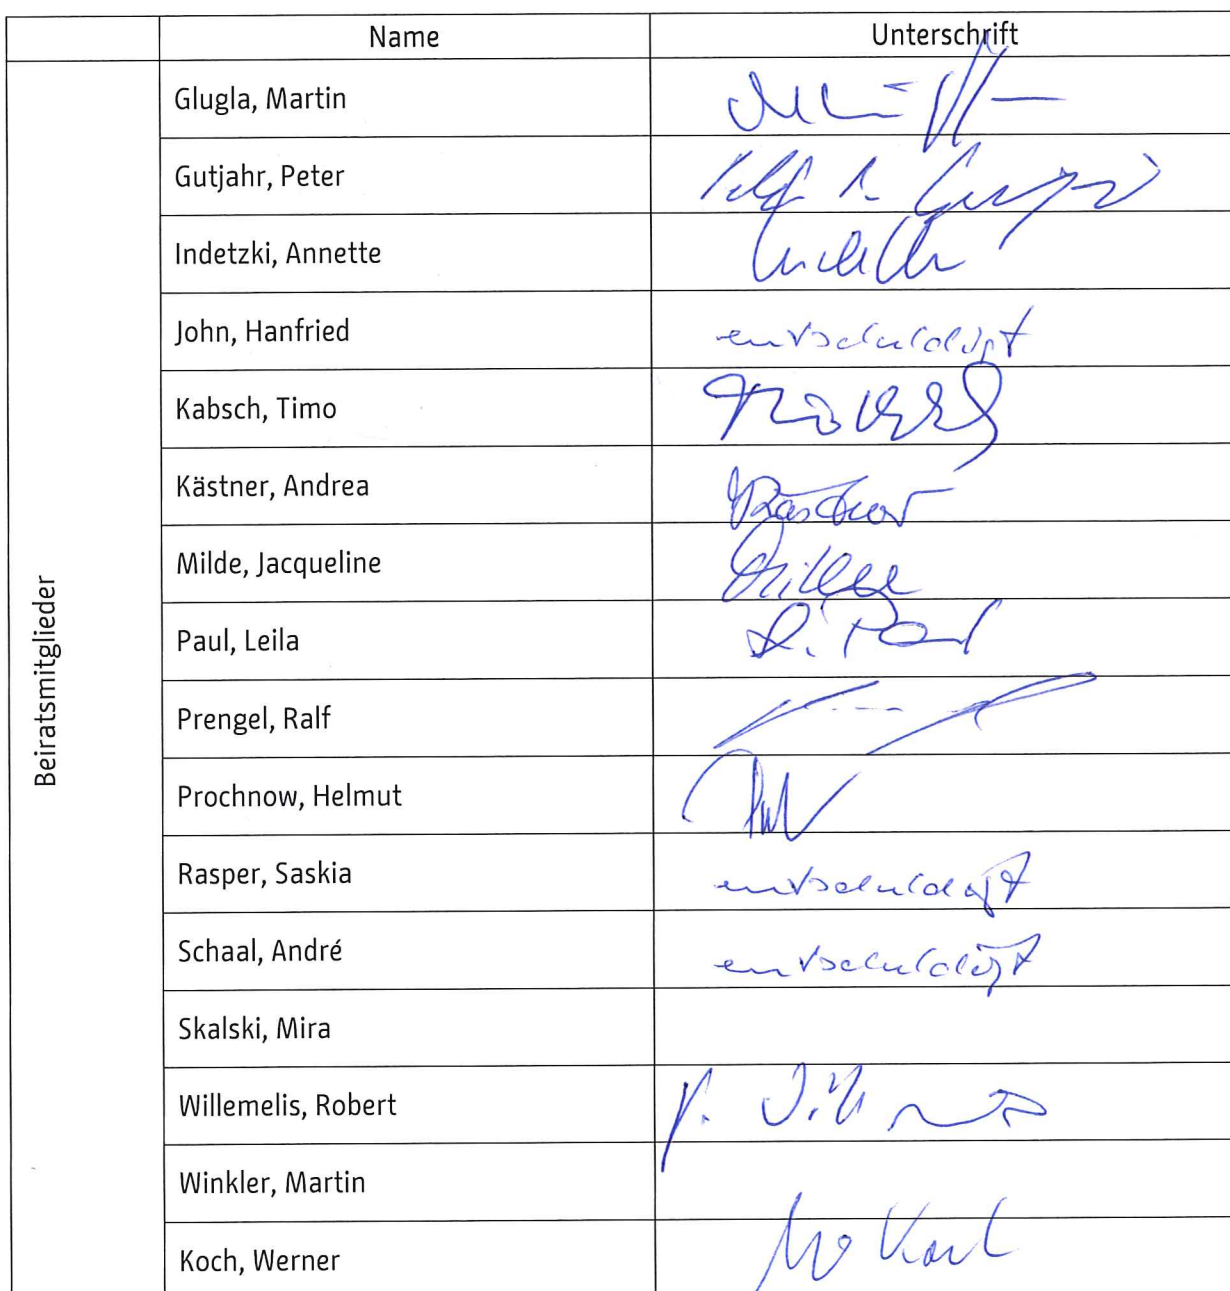 Name Unterschrift
Beiratsmitglieder
Glugla, Martin
Gutjahr, Peter
Indetzki, Annette
John, Hanfried entschuldigt
Kabsch, Timo
Kästner, Andrea
Milde, Jacqueline
Paul, Leila L. Paul
Prengel, Ralf
Prochnow, Helmut
Rasper, Saskia entschuldigt
Schaal, André entschuldigt
Skalski, Mira
Willemelis, Robert
Winkler, Martin
Koch, Werner